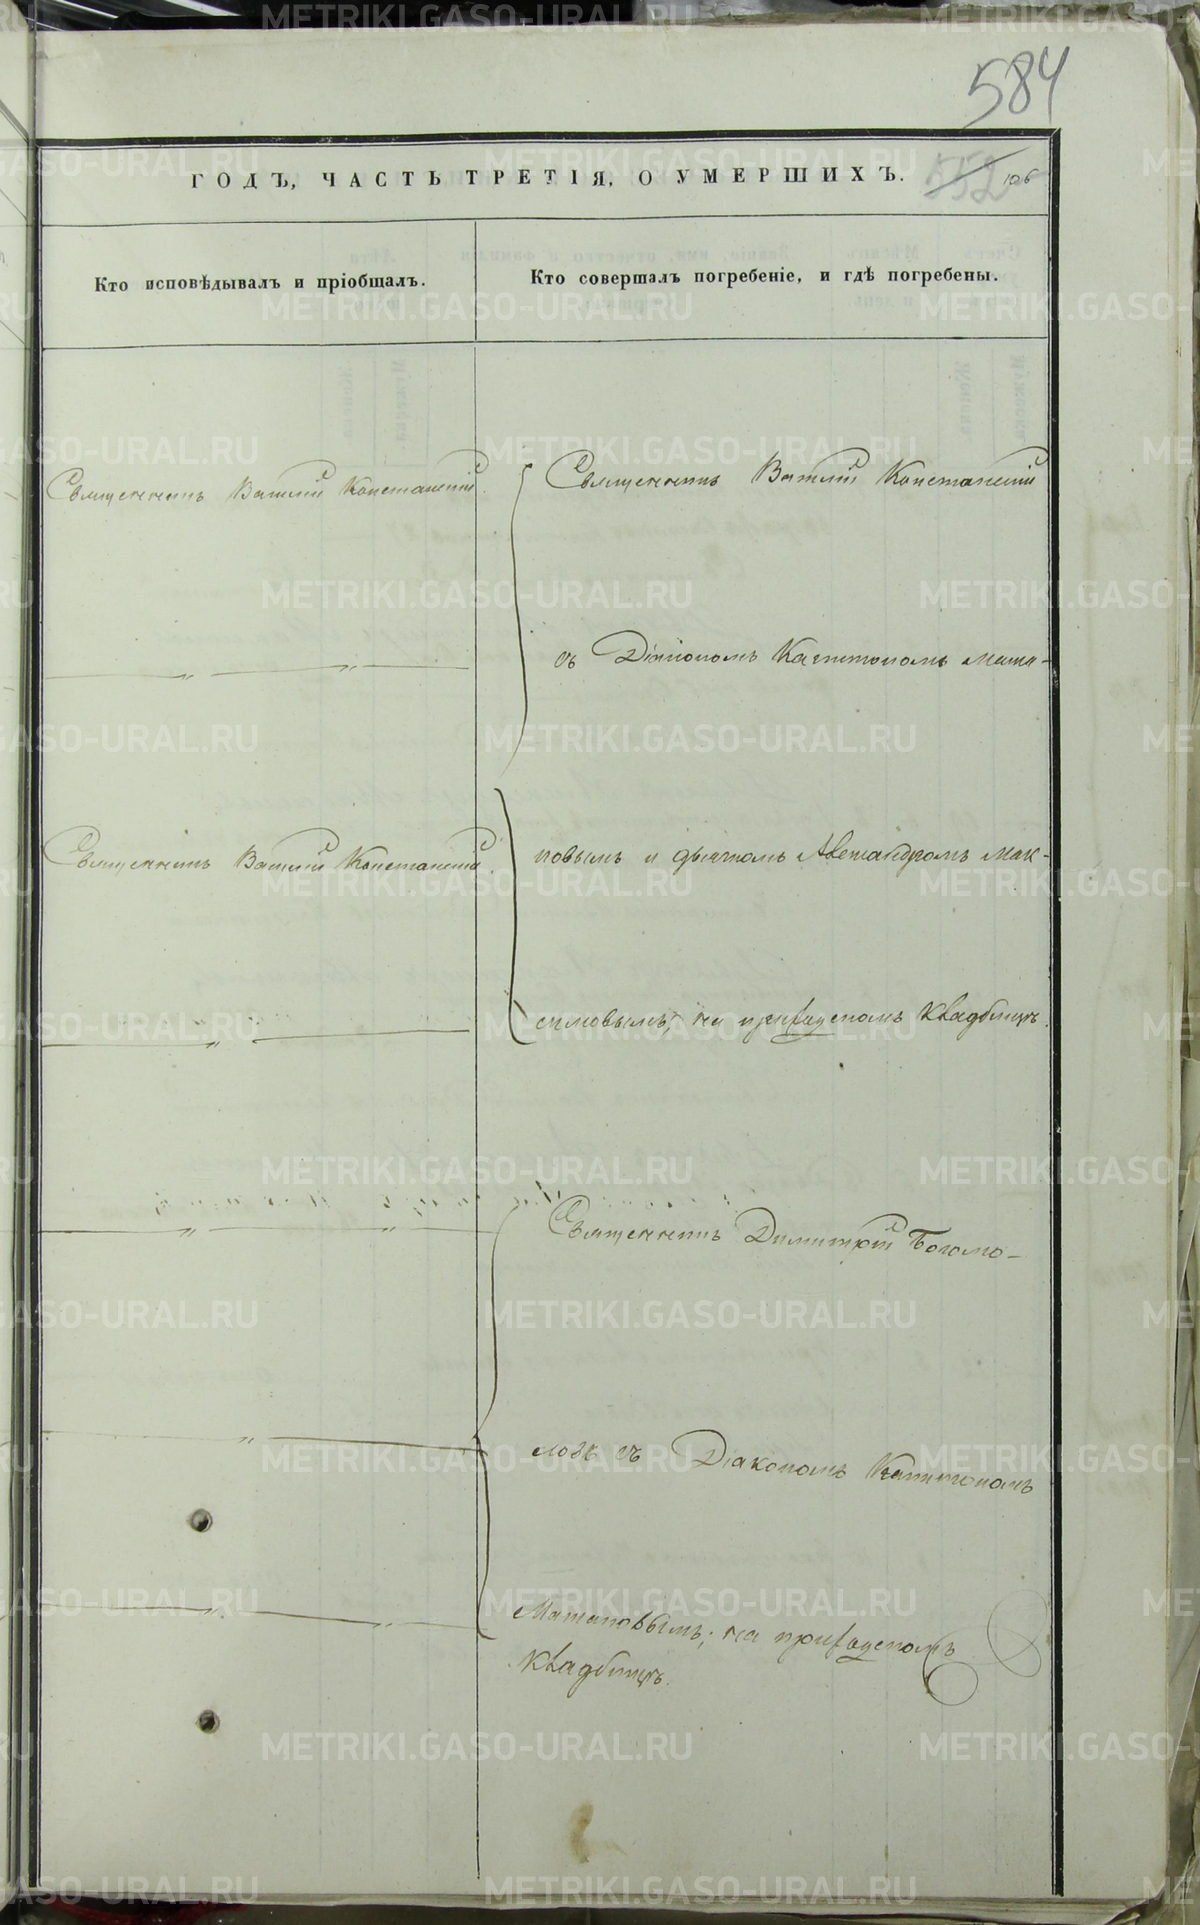 584
ГОДЪ, ЧАСТЬ ТРЕТІЯ, О УМЕРШИХЪ.
552 106
Кто исповѣдывалъ и пріобщалъ.
Кто совершалъ погребеніе, и гдѣ погребены.
Священникъ Василій Констанскій
Священникъ Василій Констанскій
съ Діакономъ Капитономъ Мата-
Священникъ Василій Констанскій
новымъ и дьячкомъ Александромъ Мак-
симовымъ; на приходскомъ кладбищѣ.
Священникъ Димитрій Богомо-
ловъ съ Діакономъ Капитономъ
Матановымъ; на приходскомъ
кладбищѣ.
METRIKI.GASO-URAL.RU